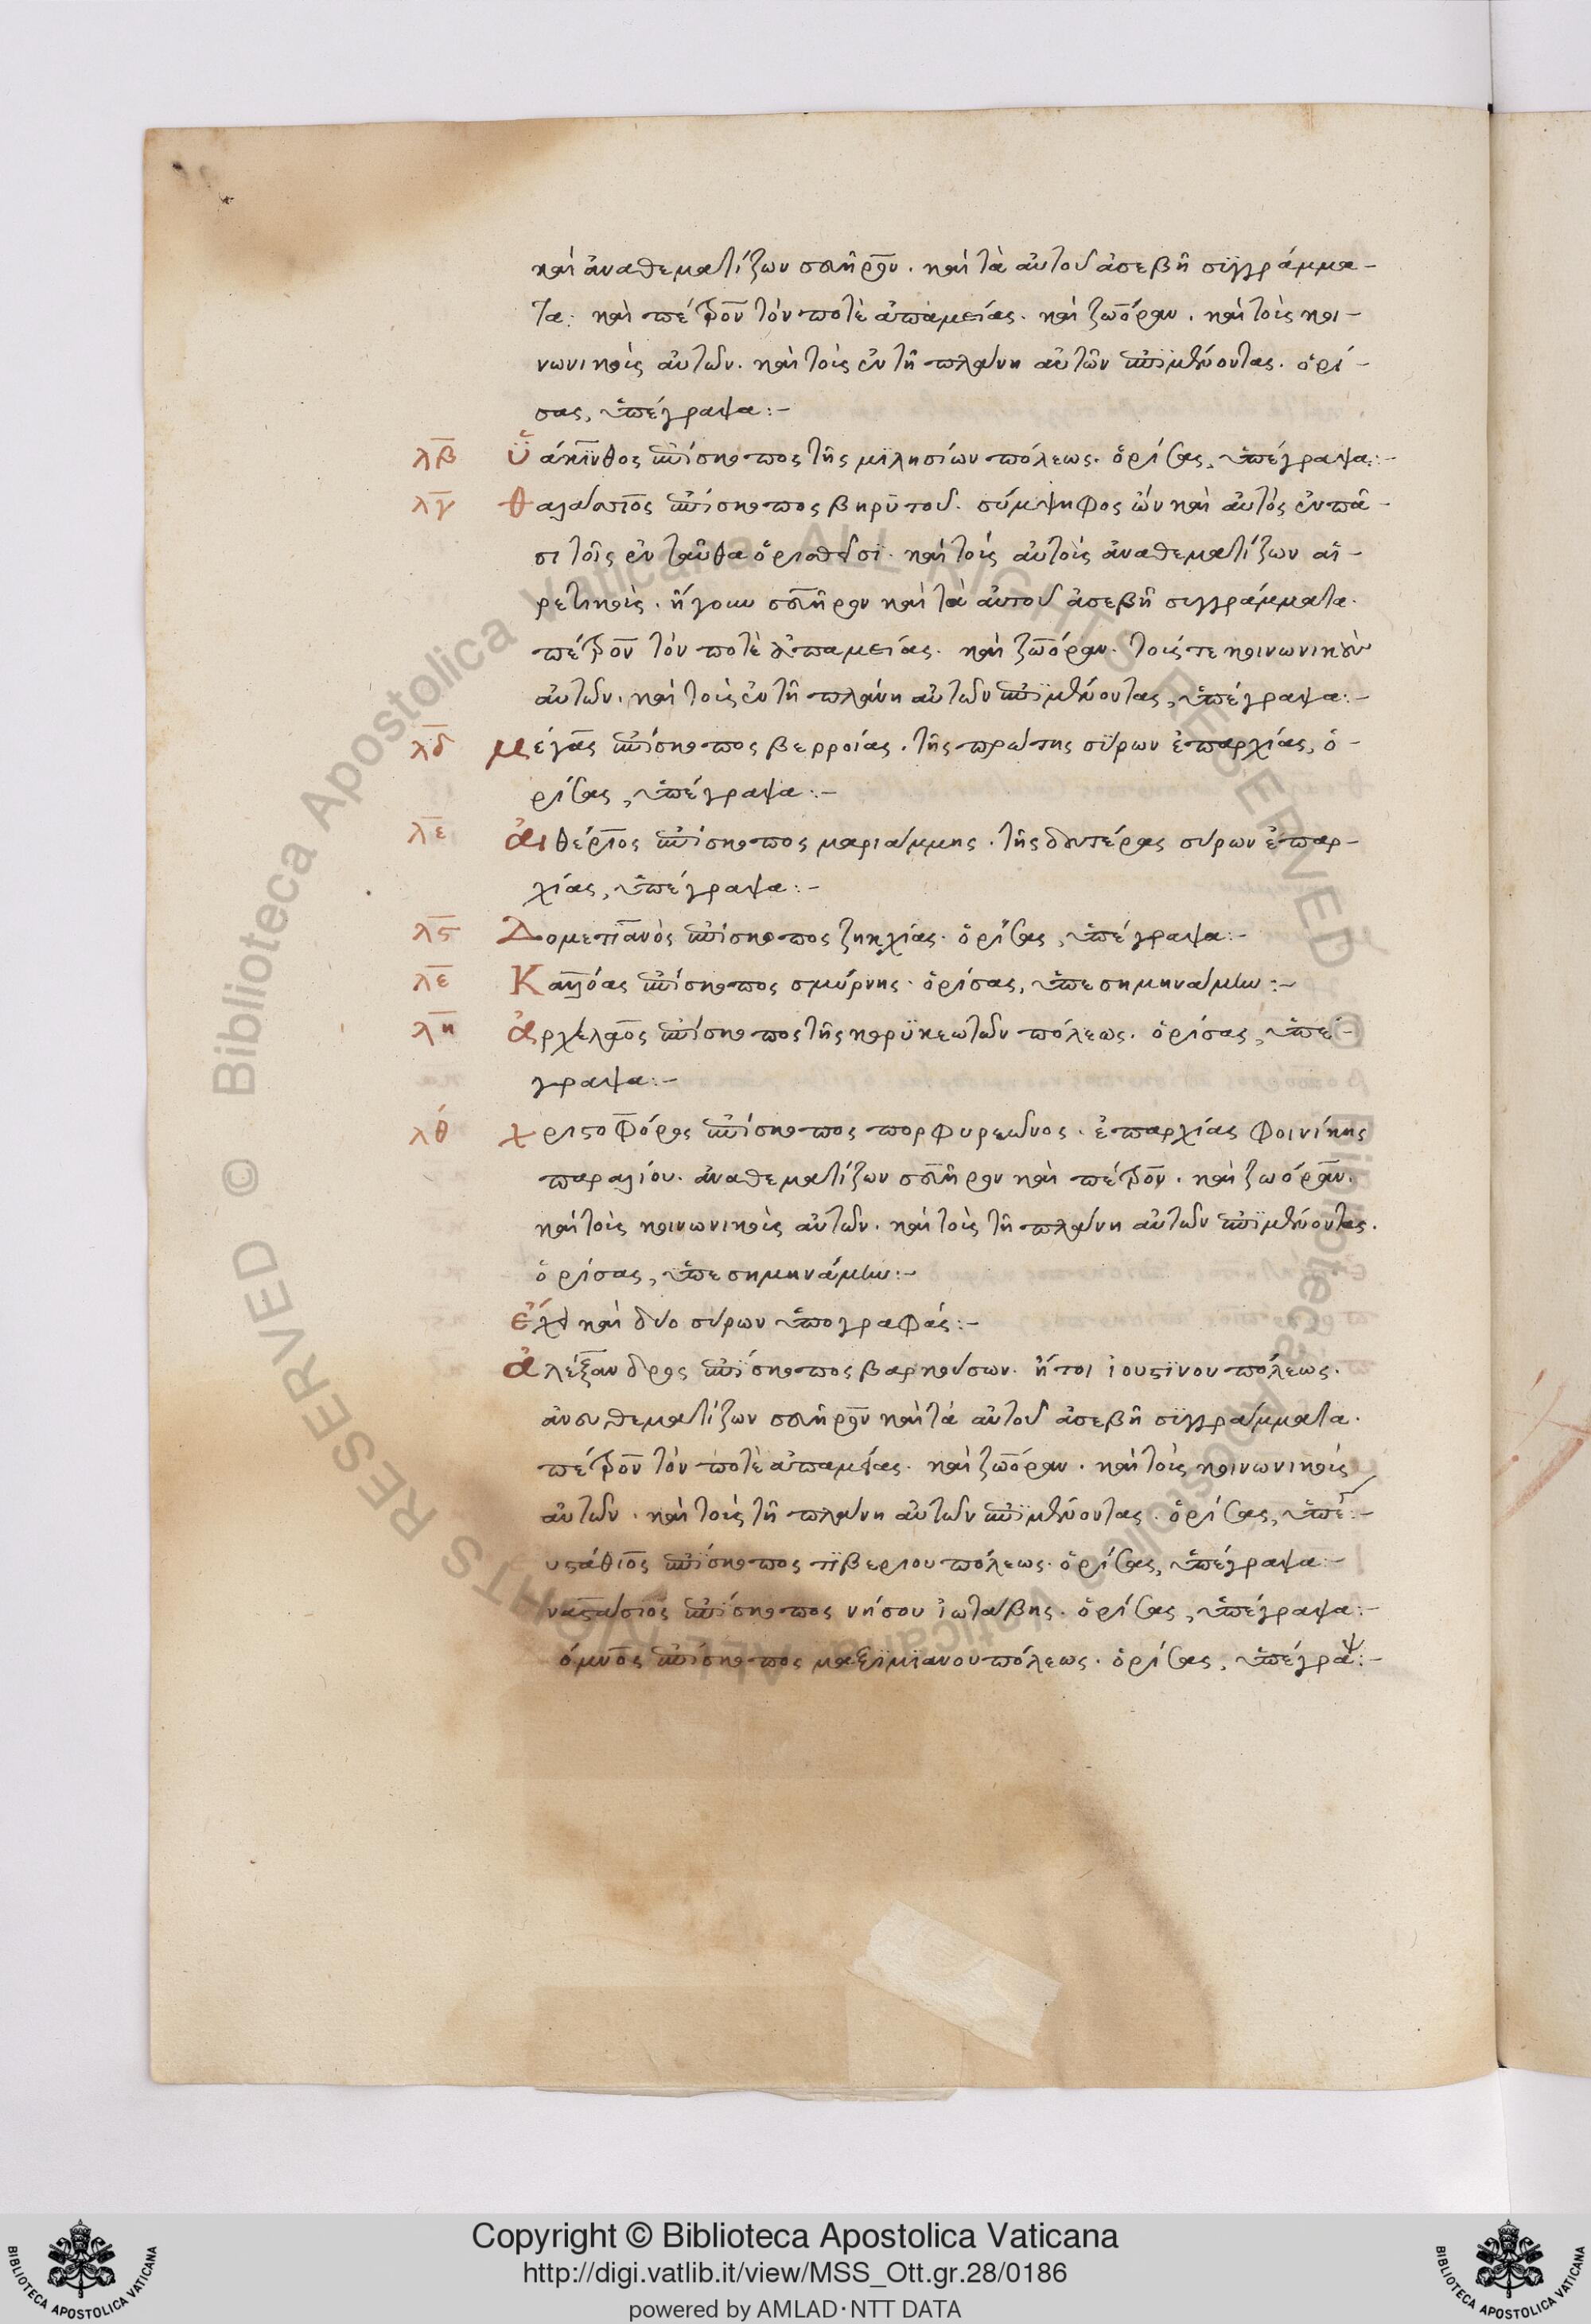 καὶ ἀναθεματίζων σευῆρον. καὶ τὰ αὐτοῦ ἀσεβῆ συγγράμμα-
τα. καὶ πέτρον τὸν ποτὲ ἀπαμείας. καὶ ζωόραν. καὶ τοὺς κοι-
νωνικοὺς αὐτῶν. καὶ τοὺς ἐν τῆ πλάνη αὐτῶν ἐπιμένοντας. ὁρί-
σας, ὑπέγραψα:-
λβ ὑάκινθος ἐπίσκοπος τῆς μιλησίων πόλεως. ὁρίσας, ὑπέγραψα:-
λγ θαλάσσιος ἐπίσκοπος βηρυτοῦ. σύμψηφος ὢν καὶ αὐτὸς ἐν πᾶ-
σι τοῖς ἐνταῦθα ὁρισθεῖσι. καὶ τοὺς αὐτοὺς ἀναθεματίζων αἱ-
ρετικοὺς. ἤγουν σευῆρον καὶ τὰ αὐτοῦ ἀσεβῆ συγγράμματα.
πέτρον τὸν ποτὲ ἀπαμείας. καὶ ζωόραν. τούς τε κοινωνικοὺς
αὐτῶν. καὶ τοὺς ἐν τῆ πλάνη αὐτῶν ἐπιμένοντας, ὑπέγραψα:-
λδ μέγας ἐπίσκοπος βερροίας. τῆς πρώτης σύρων ἐπαρχίας, ὁ-
ρίσας, ὑπέγραψα:-
λε αἰθέριος ἐπίσκοπος μαριάμμης. τῆς δευτέρας σύρων ἐπαρ-
χίας, ὑπέγραψα:-
λς Δομετιανὸς ἐπίσκοπος ζηκχίας. ὁρίσας, ὑπέγραψα:-
λε Καλλόας ἐπίσκοπος σμύρνης. ὁρίσας, ὑπεσημηνάμην:-
λη ἀρχέλαος ἐπίσκοπος τῆς κορυκεωτῶν πόλεως. ὁρίσας, ὑπέ-
γραψα:-
λθ χριστοφόρος ἐπίσκοπος πορφυρεῶνος. ἐπαρχίας φοινίκης
παραλίου. ἀναθεματίζων σευῆρον καὶ πέτρον. καὶ ζωόραν.
καὶ τοὺς κοινωνικοὺς αὐτῶν. καὶ τοὺς τῆ πλάνη αὐτῶν ἐπιμένοντας.
ὁρίσας, ὑπεσημηνάμην:-
ἔχει καὶ δύο σύρων ὑπογραφάς:-
ἀλέξανδρος ἐπίσκοπος βαρκούσων. ἤτοι ἰουστίνου πόλεως.
ἀναθεματίζων σευῆρον καὶ τὰ αὐτοῦ ἀσεβῆ συγγράμματα.
πέτρον τὸν ποτὲ ἀπαμείας. καὶ ζωόραν. καὶ τοὺς κοινωνικοὺς
αὐτῶν. καὶ τοὺς τῆ πλάνη αὐτῶν ἐπιμένοντας. ὁρίσας, ὑπέ:-
υστάθιος ἐπίσκοπος τιβεριουπόλεως. ὁρίσας, ὑπέγραψα:-
ναστάσιος ἐπίσκοπος νήσου ἰωτάβης. ὁρίσας, ὑπέγραψα:-
όμνος ἐπίσκοπος μαξιμιανουπόλεως. ὁρίσας, ὑπέγραψ:-
Copyright © Biblioteca Apostolica Vaticana
http://digi.vatlib.it/view/MSS_Ott.gr.28/0186
powered by AMLAD·NTT DATA